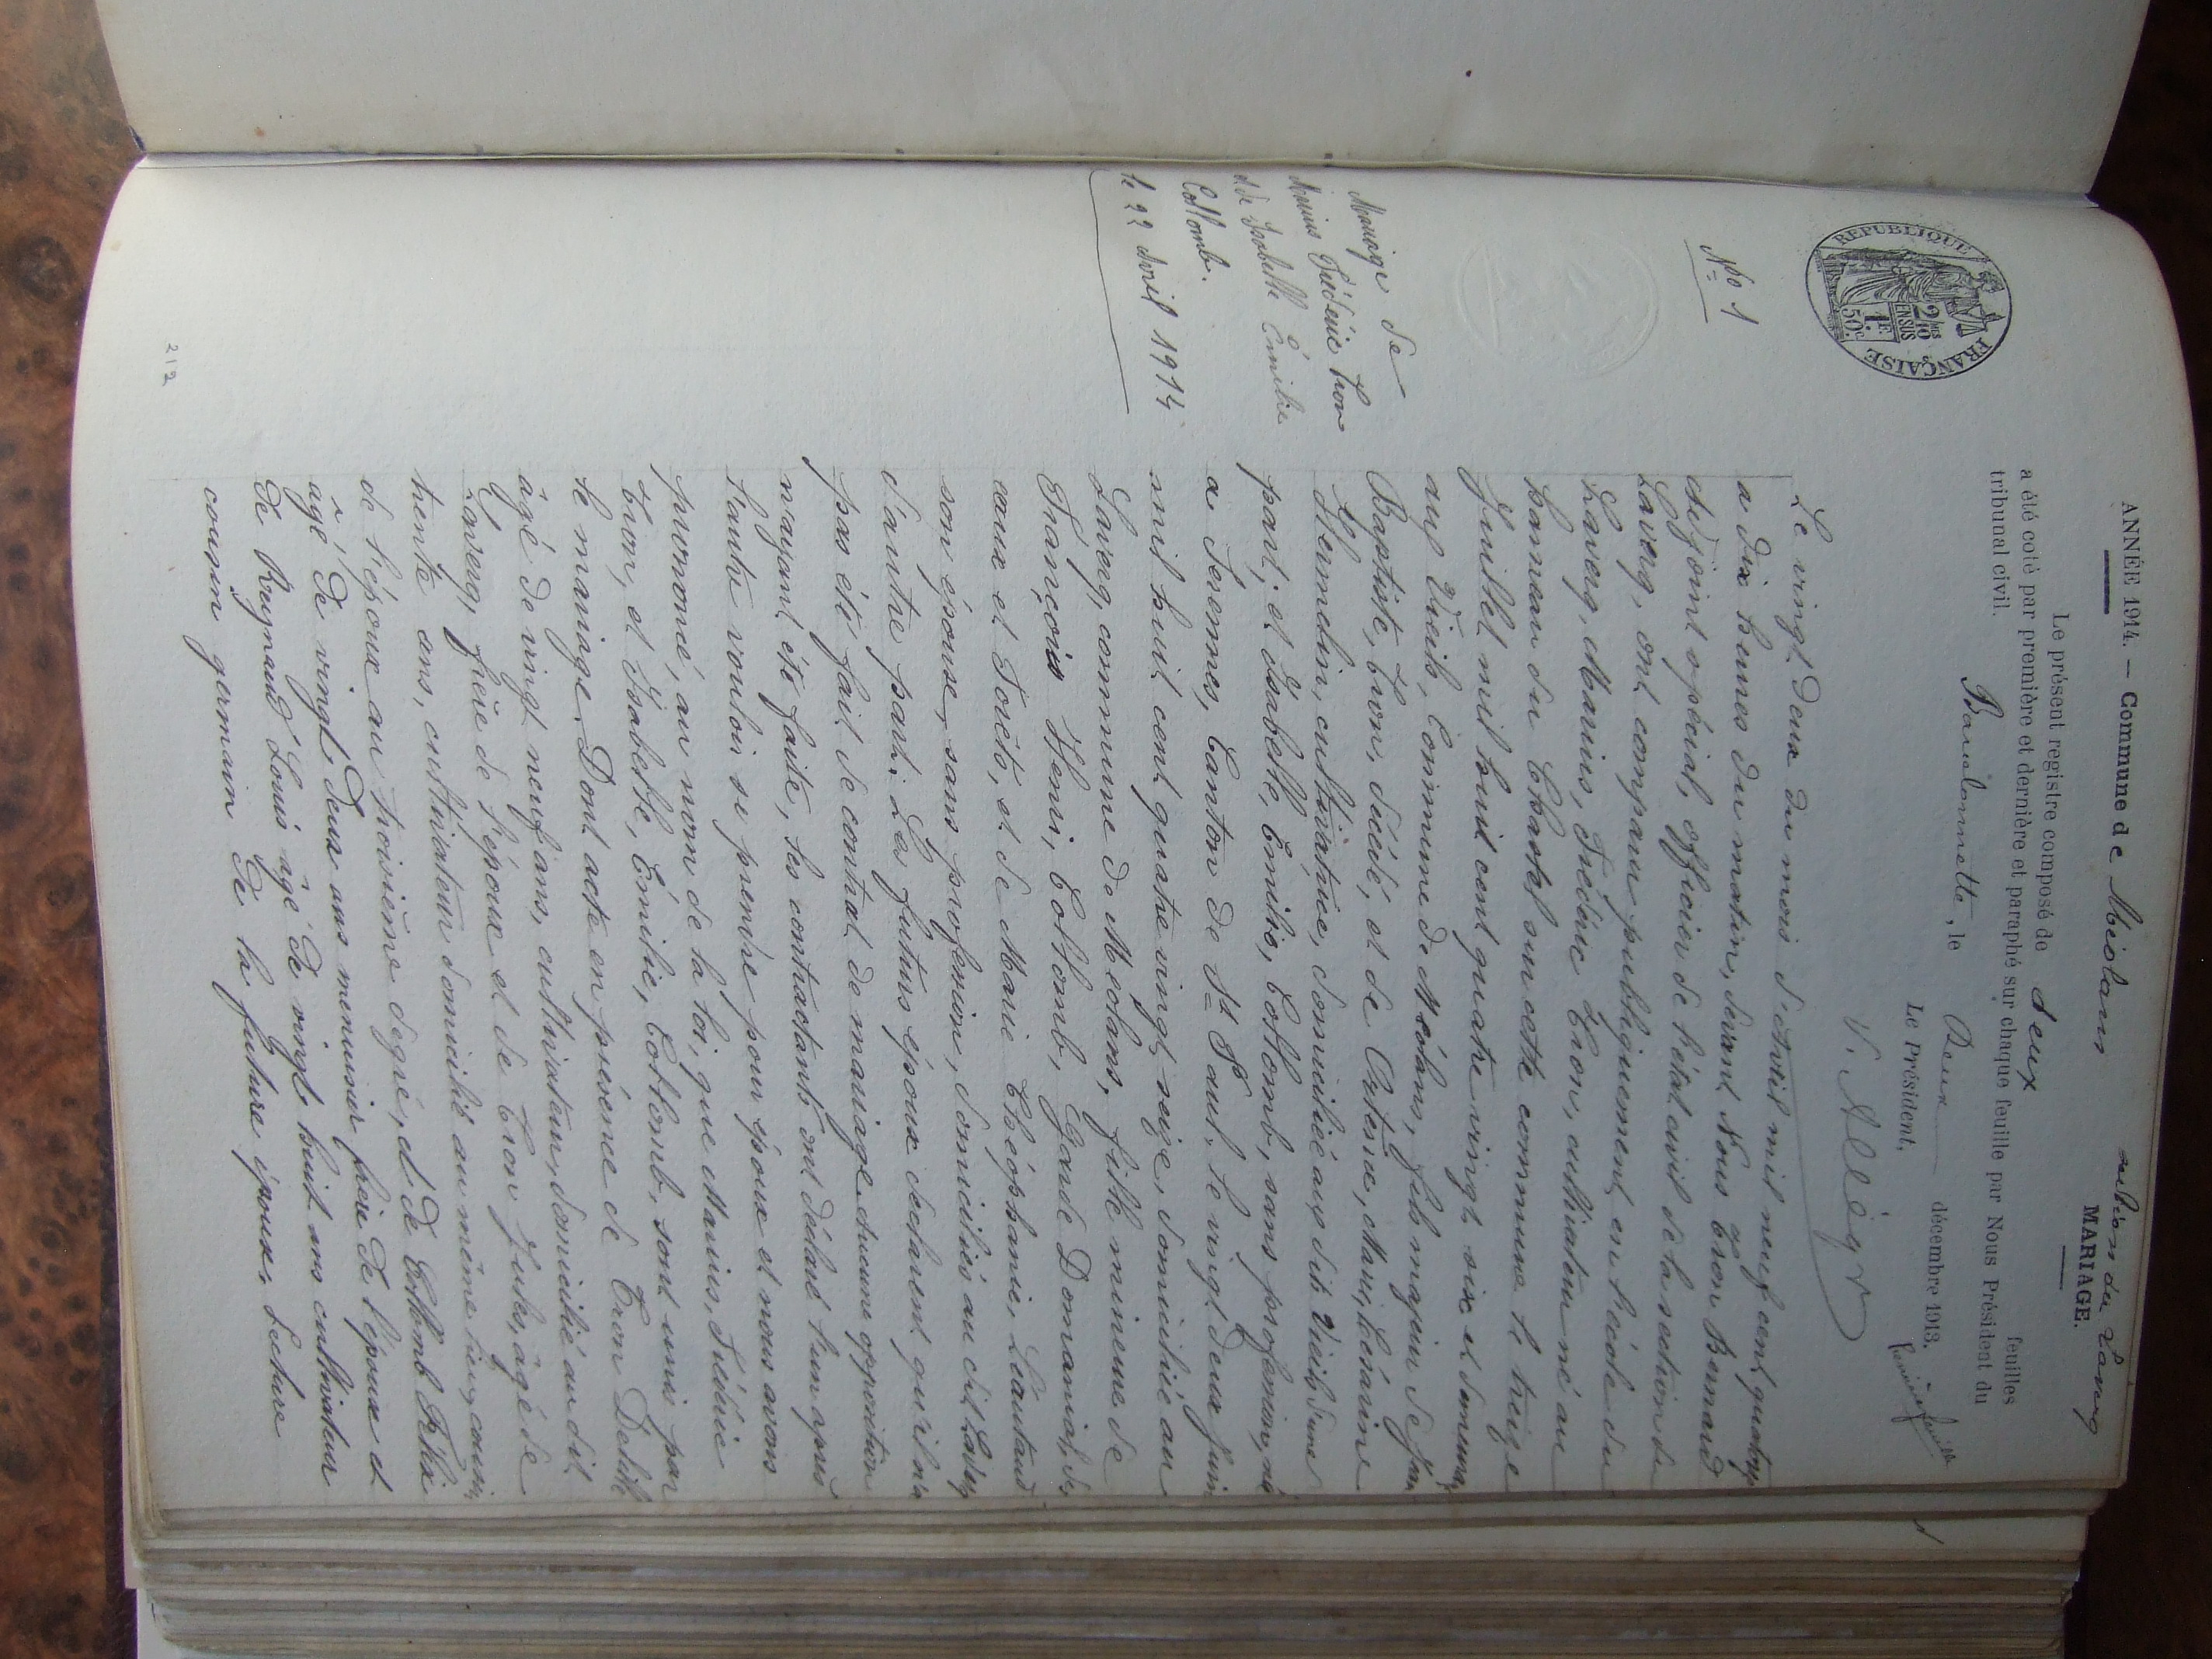 ANNÉE 1914. — Commune de Méolans section du Laverq
MARIAGE.
Le présent registre composé de deux feuilles
a été coté par première et dernière et paraphé sur chaque feuille par Nous Président du
tribunal civil.
Barcelonnette, le Deux décembre 1913.
Le Président,
V. Allègre
REPUBLIQUE FRANÇAISE
2/10 EN SUS
1F. 50c.
No 1
Mariage de
Marius Frédéric Tron
et de Isabelle Émilie
Collomb.
le 22 Avril 1914
Le vingt Deux du mois d'Avril mil neuf cent quatorze
a dix heures du matin, devant Nous Tron Bernard
adjoint spécial, officier de l'état civil de la section de
Laverq, ont comparu publiquement en l'école du
Laverq, Marius, Frédéric Tron, cultivateur né au
hameau du Chastel sur cette commune le treize
Juillet mil huit cent quatre vingt six et demeurant
aux Vieils, Commune de Méolans, fils majeur de Jean
Baptiste, Tron, décédé, et de Ortense, Marie, Césarine
Hermelin, cultivatrice, domiciliée aux dits Vieils d'une
part; et Isabelle, Émilie, Collomb, sans profession, née
a Fosemes, Canton de St Paul, le vingt Deux Juin
mil huit cent quatre vingt seize, domiciliée au
Laverq, commune de Meolans, fille mineure de
François Henri, Collomb, Garde Domanial, des
eaux et Forêts, et de Marie Théophanie, Lautaud
son épouse, sans profession, domiciliés au dit Laverq
d'autre part. Les futurs époux declarent qu'il n'a
pas été fait de contrat de mariage. Aucune opposition
n'ayant été faite, les contractants ont déclaré l'un après
l'autre vouloir se prendre pour époux et nous avons
prononcé, au nom de la loi, que Marius, Frédéric
Tron, et Isabelle, Émilie, Collomb, sont unis par
le mariage. Dont acte en présence de Tron
âgé de vingt neuf ans, cultivateur, domicilié au dit
Laverq, frère de l'époux et de Tron Jules, âgé de
trente ans, cultivateur domicilié au même lieu, cousin
de l'époux au troisième degré, et de Collomb Félix
agé de vingt deux ans menuisier frère de l'épouse et
de Reynaud Louis âgé de vingt huit ans cultivateur
cousin germain de la future épouse. Lecture
212